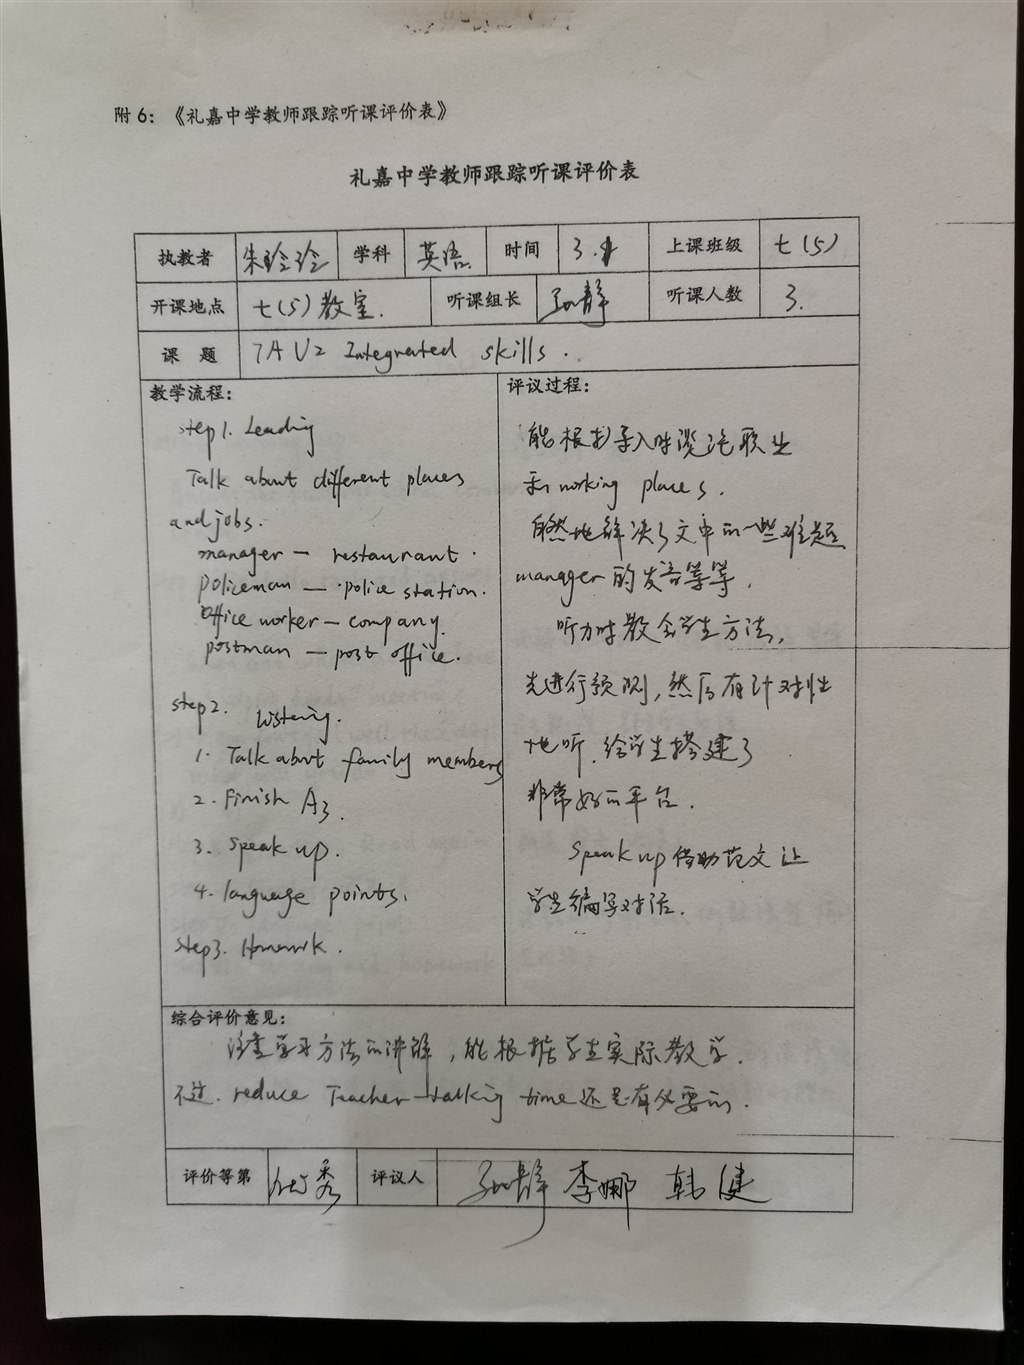 附6：《礼嘉中学教师跟踪听课评价表》
礼嘉中学教师跟踪听课评价表
执教者 朱玲玲 学科 英语. 时间 3. 上课班级 七(5)
开课地点 七(5)教室. 听课组长 孙静 听课人数 3.
课 题 7A U2 Integrated skills.
教学流程:
step1. Leading
Talk about different places
and jobs.
manager — restaurant.
policeman — police station.
office worker — company.
postman — post office.
step2. listening.
1. Talk about family members
2. Finish A3.
3. Speak up.
4. language points.
step3. Homework.
评议过程:
能根据导入时谈论职业
和working places.
自然地解决了文中的一些难题
manager的发音等等.
听力时教会学生方法,
先进行预测,然后有针对性
地听.给学生搭建了
非常好的平台.
Speak up借助范文让
学生编写对话.
综合评价意见:
注重学习方法的讲解,能根据学生实际教学.
不过.reduce Teacher-talking time还是有必要的.
评价等第 优秀 评议人 孙静 李娜 韩健